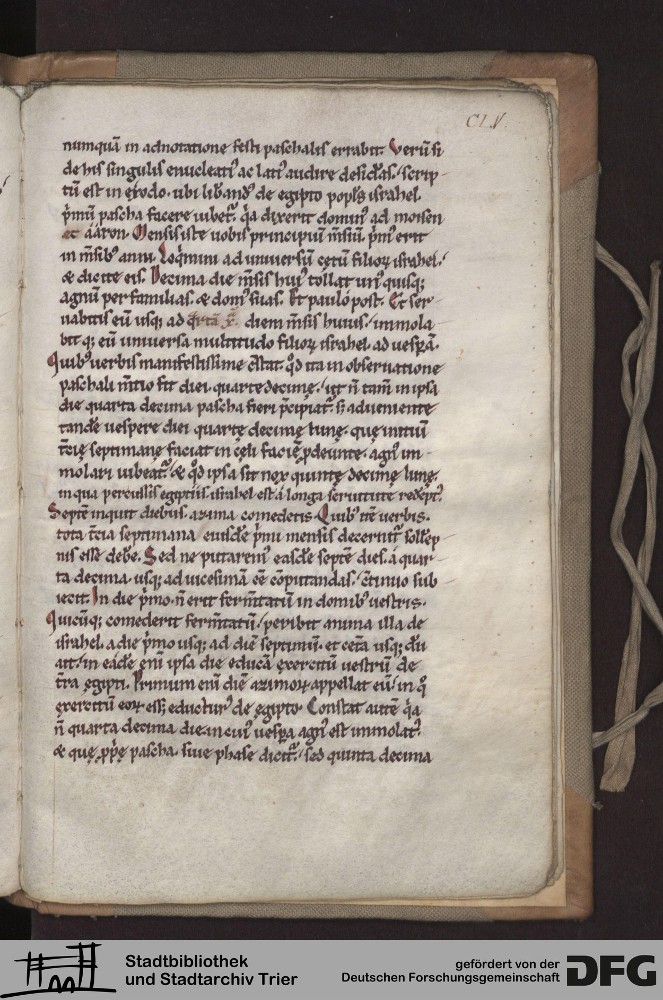 CLV
numquā in adnotatione festi paschalis errabit. Verū si
de his singulis enucleati᾽ ac lati᾽ audire desid̄as. scrip-
tū est in exodo. ubi lib̄and᾽ de egipto popl̄s israhel.
p̄mū pascha facere iubet᾽. q̄a dixerit domin᾽ ad moisen
et aaron. Mensis iste uobis principiū m̄siū. p̄m᾽ erit
in m̄sib᾽ anni. Loq̄mini ad uniuersū cętū filioꝝ israhel.
& dicite eis. Decima die m̄sis hui᾽ tollat un᾽ quisq;
agnū per familias. & dom᾽ suas. Et paulo post. Et ser-
uabitis eū usq; ad q̄rtā x̄. diem m̄sis huius. immola
bit q; eū uniuersa multitudo filioꝝ israhel ad uesp̄ā.
Quib᾽ uerbis manifestissime c̄stat. q̄d ita in obseruatione
paschali m̄tio fit diei quartedecimę. ut n̄ tam̄ in ipsa
die quarta decima pascha fieri p̄cipiat᾽. s; adueniente
tandē uespere diei quartę decimę lunę. quę initiū
t̄cię septimanę faciat in cęli facię p̄deunte. agn᾽ im-
molari iubeat᾽. & q̄d ipsa sit nox quintę decimę lunę.
in qua percussis egiptiis. israhel est a longa seruitute redēpt᾽.
Septē inquit diebus. azima comedetis. Quib᾽ itē uerbis.
tota t̄cia septimana eiusdē p̄mi mensis decernit᾽ sollēp
nis esse debe᾽. Sed ne putarem᾽ easdē septē dies. a quar-
ta decima. usq; ad uicesimā eē cōputandas. c̄tinuo sub
iecit. In die p̄mo. n̄ erit ferm̄tatū in domib᾽ uestris.
Quicūq; comederit ferm̄tatū. peribit anima illa de
israhel. a die p̄mo usq; ad diē septimū. et cet̄a usq; dū
ait. in eadē eni ipsa die educā exercitū uestrū de
t̄ra egipti. Primum eni diē azimoꝝ appellat eū. in q̊
exercitū eoꝝ ess; eductur᾽ de egipto. Constat autē q̄a
n̄ quarta decima die. in cui᾽ uesp̄a agn᾽ est immolat᾽.
& quę p̄p̄ę pascha. siue phase dicit᾽. sed quinta decima
Stadtbibliothek
und Stadtarchiv Trier
gefördert von der
Deutschen Forschungsgemeinschaft
DFG